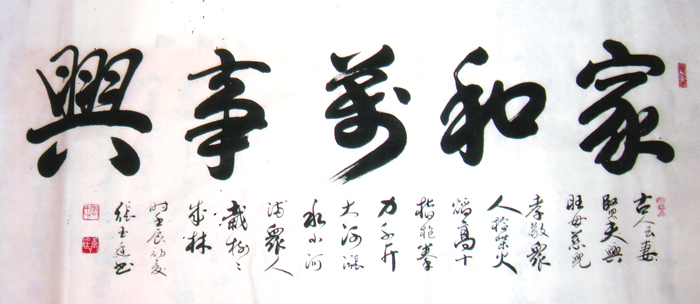 家和萬事興
古人云妻
賢夫興
旺母慈兒
孝敬眾
人拾柴火
焰高十
指抱拳
力千斤
大河漲
水小河
滿眾人
栽樹〻
成林
時壬辰初夏
張玉書